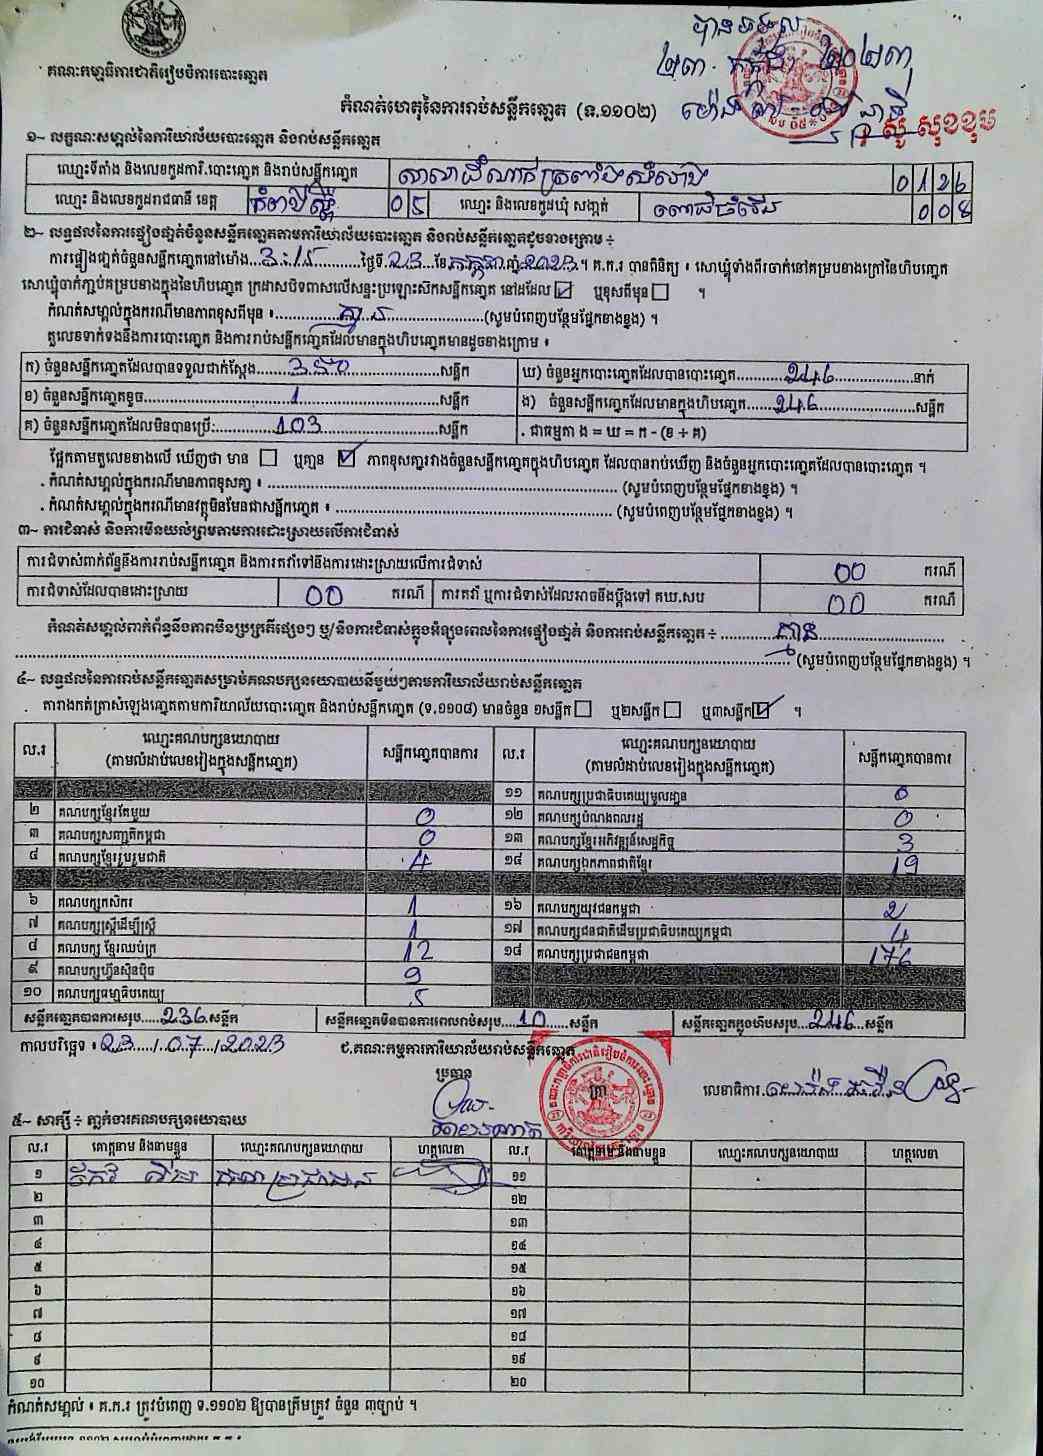 គណៈកម្មាធិការជាតិរៀបចំការបោះឆ្នោត
បានទទួល
២៣ កក្កដា ២០២៣
ម៉ោង
សូ សុខខុម
កំណត់ហេតុនៃការរាប់សន្លឹកឆ្នោត (ទ.១១០២)
១~ លក្ខណៈសម្គាល់នៃការិយាល័យបោះឆ្នោត និងរាប់សន្លឹកឆ្នោត
ឈ្មោះទីតាំង និងលេខកូដការិ.បោះឆ្នោត និងរាប់សន្លឹកឆ្នោត សាលាដំណាក់ត្រពាំង 0126
ឈ្មោះ និងលេខកូដរាជធានី ខេត្ត កំពង់ស្ពឺ 05 ឈ្មោះ និងលេខកូដឃុំ សង្កាត់ ពោធិ៍ចំរើន 008
២~ លទ្ធផលនៃការផ្ទៀងផ្ទាត់ចំនួនសន្លឹកឆ្នោតតាមការិយាល័យបោះឆ្នោត និងរាប់សន្លឹកឆ្នោតដូចខាងក្រោម ÷
ការផ្ទៀងផ្ទាត់ចំនួនសន្លឹកឆ្នោតនៅម៉ោង...3:15...ថ្ងៃទី.23..ខែ.កក្កដា.ឆ្នាំ.2023.។ គ.ក.រ បានពិនិត្យ ៖ សោឃ្លុំទាំងពីរចាក់នៅគម្របខាងក្រៅនៃហិបឆ្នោត
សោឃ្លុំចាក់ភ្ជាប់គម្របខាងក្នុងនៃហិបឆ្នោត ក្រដាសបិទពាសលើសន្ទះប្រឡោះស៊កសន្លឹកឆ្នោត នៅដដែល ☑ ឬខុសពីមុន ☐ ។
កំណត់សម្គាល់ក្នុងករណីមានភាពខុសពីមុន ៖...គ្មាន...(សូមបំពេញបន្ថែមផ្នែកខាងខ្នង) ។
តួលេខទាក់ទងនឹងការបោះឆ្នោត និងការរាប់សន្លឹកឆ្នោតដែលមានក្នុងហិបឆ្នោតមានដូចខាងក្រោម ៖
ក) ចំនួនសន្លឹកឆ្នោតដែលបានទទួលជាក់ស្តែង...350...សន្លឹក ឃ) ចំនួនអ្នកបោះឆ្នោតដែលបានបោះឆ្នោត...246...នាក់
ខ) ចំនួនសន្លឹកឆ្នោតខូច...1...សន្លឹក ង) ចំនួនសន្លឹកឆ្នោតដែលមានក្នុងហិបឆ្នោត...246...សន្លឹក
គ) ចំនួនសន្លឹកឆ្នោតដែលមិនបានប្រើ:...103...សន្លឹក . ជាធម្មតា ង = ឃ = ក - (ខ + គ)
ផ្អែកតាមតួលេខខាងលើ ឃើញថា មាន ☐ ឬគ្មាន ☑ ភាពខុសគ្នារវាងចំនួនសន្លឹកឆ្នោតក្នុងហិបឆ្នោត ដែលបានរាប់ឃើញ និងចំនួនអ្នកបោះឆ្នោតដែលបានបោះឆ្នោត ។
. កំណត់សម្គាល់ក្នុងករណីមានភាពខុសគ្នា ៖ ... (សូមបំពេញបន្ថែមផ្នែកខាងខ្នង) ។
. កំណត់សម្គាល់ក្នុងករណីមានវត្ថុមិនមែនជាសន្លឹកឆ្នោត ៖ ... (សូមបំពេញបន្ថែមផ្នែកខាងខ្នង) ។
៣~ ការជំទាស់ និងការមិនយល់ព្រមតាមការដោះស្រាយលើការជំទាស់
ការជំទាស់ពាក់ព័ន្ធនឹងការរាប់សន្លឹកឆ្នោត និងការតវ៉ាទៅនឹងការដោះស្រាយលើការជំទាស់ 00 ករណី
ការជំទាស់ដែលបានដោះស្រាយ 00 ករណី ការតវ៉ា ឬការជំទាស់ដែលអាចនឹងប្តឹងទៅ គឃ.សប 00 ករណី
កំណត់សម្គាល់ពាក់ព័ន្ធនឹងភាពមិនប្រក្រតីផ្សេងៗ ឬ/និងការជំទាស់ក្នុងអំឡុងពេលនៃការផ្ទៀងផ្ទាត់ និងការរាប់សន្លឹកឆ្នោត ÷ ...គ្មាន...
... (សូមបំពេញបន្ថែមផ្នែកខាងខ្នង) ។
៤~ លទ្ធផលនៃការរាប់សន្លឹកឆ្នោតសម្រាប់គណបក្សនយោបាយនីមួយៗតាមការិយាល័យរាប់សន្លឹកឆ្នោត
តារាងកត់ត្រាសំឡេងឆ្នោតតាមការិយាល័យបោះឆ្នោត និងរាប់សន្លឹកឆ្នោត (ទ.១១០៨) មានចំនួន ១សន្លឹក ☐ ឬ២សន្លឹក ☐ ឬ៣សន្លឹក ☑ ។
ល.រ ឈ្មោះគណបក្សនយោបាយ (តាមលំដាប់លេខរៀងក្នុងសន្លឹកឆ្នោត) សន្លឹកឆ្នោតបានការ ល.រ ឈ្មោះគណបក្សនយោបាយ (តាមលំដាប់លេខរៀងក្នុងសន្លឹកឆ្នោត) សន្លឹកឆ្នោតបានការ
១១ គណបក្សប្រជាធិបតេយ្យមូលដ្ឋាន 0
២ គណបក្សខ្មែរតែមួយ 0 ១២ គណបក្សបំណងពលរដ្ឋ 0
៣ គណបក្សសញ្ជាតិកម្ពុជា 0 ១៣ គណបក្សខ្មែរអភិវឌ្ឍន៍សេដ្ឋកិច្ច 3
៤ គណបក្សខ្មែររួបរួមជាតិ 4 ១៤ គណបក្សឯកភាពជាតិខ្មែរ 19
៦ គណបក្សកសិករ 1 ១៦ គណបក្សយុវជនកម្ពុជា 2
៧ គណបក្សស្ត្រីដើម្បីស្ត្រី 1 ១៧ គណបក្សជនជាតិដើមប្រជាធិបតេយ្យកម្ពុជា 4
៨ គណបក្ស ខ្មែរឈប់ក្រ 12 ១៨ គណបក្សប្រជាជនកម្ពុជា 176
៩ គណបក្សហ្វ៊ុនស៊ិនប៉ិច 9
១០ គណបក្សធម្មាធិបតេយ្យ 5
សន្លឹកឆ្នោតបានការសរុប.....236.សន្លឹក សន្លឹកឆ្នោតមិនបានការពេលរាប់សរុប...10...សន្លឹក សន្លឹកឆ្នោតក្នុងហិបសរុប..246..សន្លឹក
កាលបរិច្ឆេទ ៖ 23/07/2023 ជ.គណៈកម្មការការិយាល័យរាប់សន្លឹកឆ្នោត
ប្រធាន លេខាធិការ
៥~ សាក្សី ÷ ភ្នាក់ងារគណបក្សនយោបាយ
ល.រ គោត្តនាម និងនាមខ្លួន ឈ្មោះគណបក្សនយោបាយ ហត្ថលេខា ល.រ គោត្តនាម និងនាមខ្លួន ឈ្មោះគណបក្សនយោបាយ ហត្ថលេខា
១ គណបក្សប្រជាជន ១១
២ ១២
៣ ១៣
៤ ១៤
៥ ១៥
៦ ១៦
៧ ១៧
៨ ១៨
៩ ១៩
១០ ២០
កំណត់សម្គាល់ ៖ គ.ក.រ ត្រូវបំពេញ ទ.១១០២ ឱ្យបានត្រឹមត្រូវ ចំនួន ៣ច្បាប់ ។